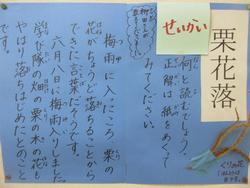 栗花落
せいかい
何と読むでしょう。
正解は紙をめくって
みてください。
梅雨に入るころ、栗の
花がちょうど落ちることから
できた言葉だそうです。
六月八日に梅雨入りしました。
学び隊の畑の栗の木の花も
やはり、落ちはじめたとのこと
です。
くりの花